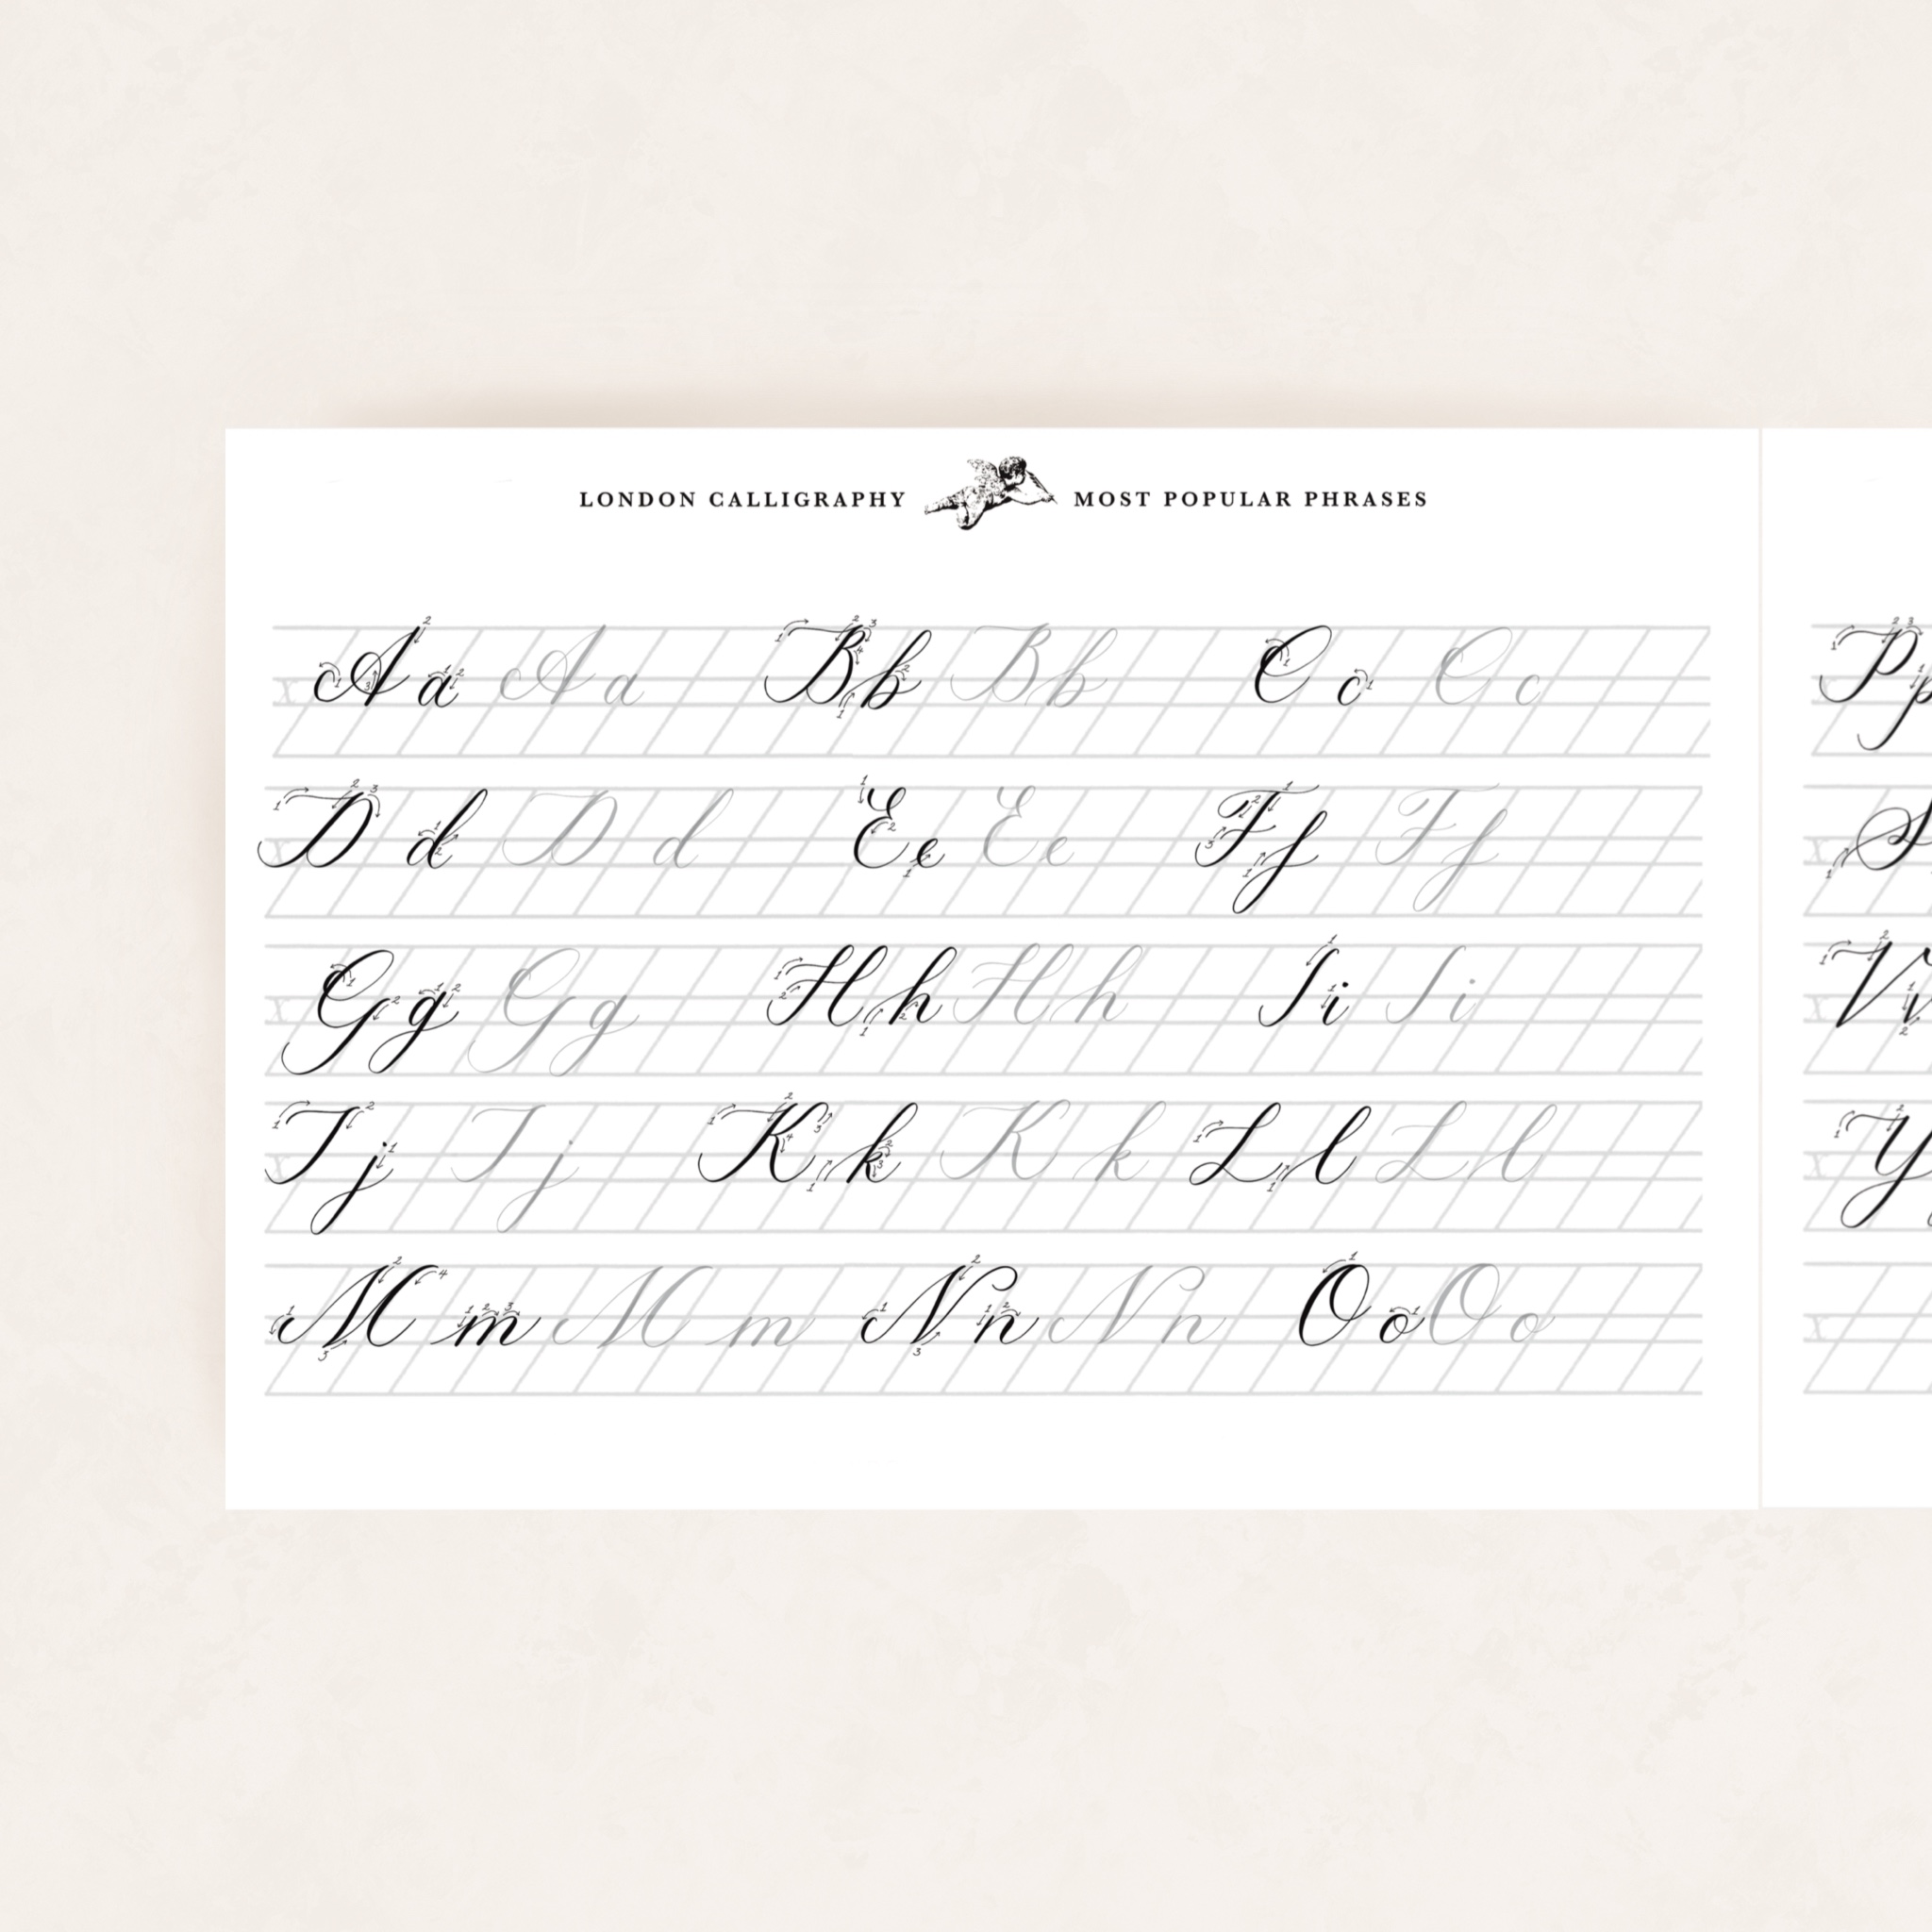 LONDON CALLIGRAPHY MOST POPULAR PHRASES
x A a A a B b B b C c C c
D d D d E e E e F f F f
x G g G g H h H h I i I i
x J j J j K k K k L l L l
M m M m N n N n O o O o
P p
x S
x V v
x Y
x